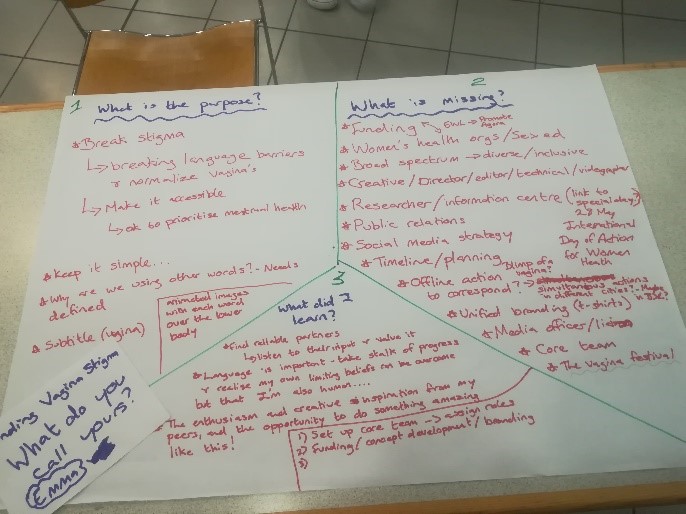 1 What is the purpose?
* Break stigma
↳ breaking language barriers
& normalize vagina's
↳ Make it accessible
↳ ok to prioritise menstrual health
* Keep it simple...
* Why are we using other words? - Needs
defined
* Subtitle (vagina)
animated images
with each word
over the lower
body
2
What is missing?
* Funding
EWL → Promote
Agora
* Women's health orgs/Sex ed
* Broad spectrum → diverse/inclusive
* Creative/Director/editor/technical/videographer
* Researcher/information centre (link to
special day?
28 May
International
Day of Action
for Women
Health
* Public relations
* Social Media strategy
* Timeline/planning
* Offline action
to correspond?
Blimp of a
vagina?
→ simultaneous actions
in different cities?
* Unified branding (t-shirts)
* Media officer/
* Core team
* The vagina festival
3
What did I
learn?
* find reliable partners
↳ listen to their input & value it
* Language is important - take stalk of progress
& realise my own limiting beliefs can be overcome
but that I'm also human....
* The enthusiasm and creative inspiration from my
peers, and the opportunity to do something amazing
like this!
1) Set up core team → assign roles
2) Funding/concept development/branding
3)
nding Vagina Stigma
What do you
call yours?
Emma